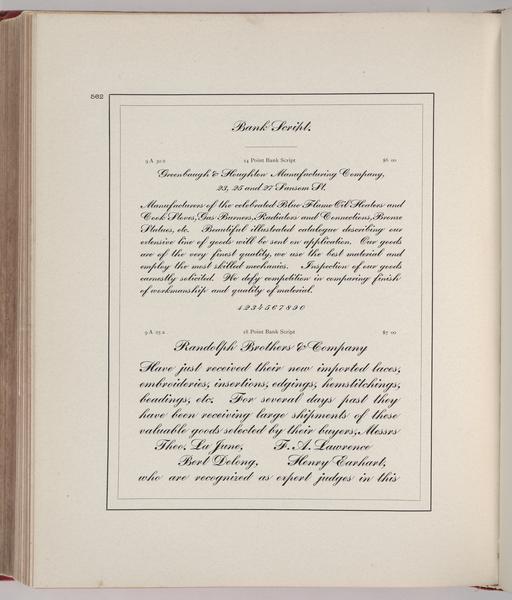 562
Bank Script.
9 A 30 a 14 Point Bank Script $6 00
Greenbaugh & Houghton Manufacturing Company,
23, 25 and 27 Sansom St.
Manufacturers of the celebrated Blue Flame Oil Heaters and
Cook Stoves, Gas Burners, Radiators and Connections, Bronze
Statues, etc. Beautiful illustrated catalogue describing our
extensive line of goods will be sent on application. Our goods
are of the very finest quality, we use the best material and
employ the most skilled mechanics. Inspection of our goods
earnestly solicited. We defy competition in comparing finish
of workmanship and quality of material.
1 2 3 4 5 6 7 8 9 0
9 A 25 a 18 Point Bank Script $7 00
Randolph Brothers & Company
Have just received their new imported laces,
embroideries, insertions, edgings, hemstitchings,
beadings, etc. For several days past they
have been receiving large shipments of these
valuable goods selected by their buyers, Messrs
Theo. La June, F. A. Lawrence
Bert Delong, Henry Earhart,
who are recognized as expert judges in this